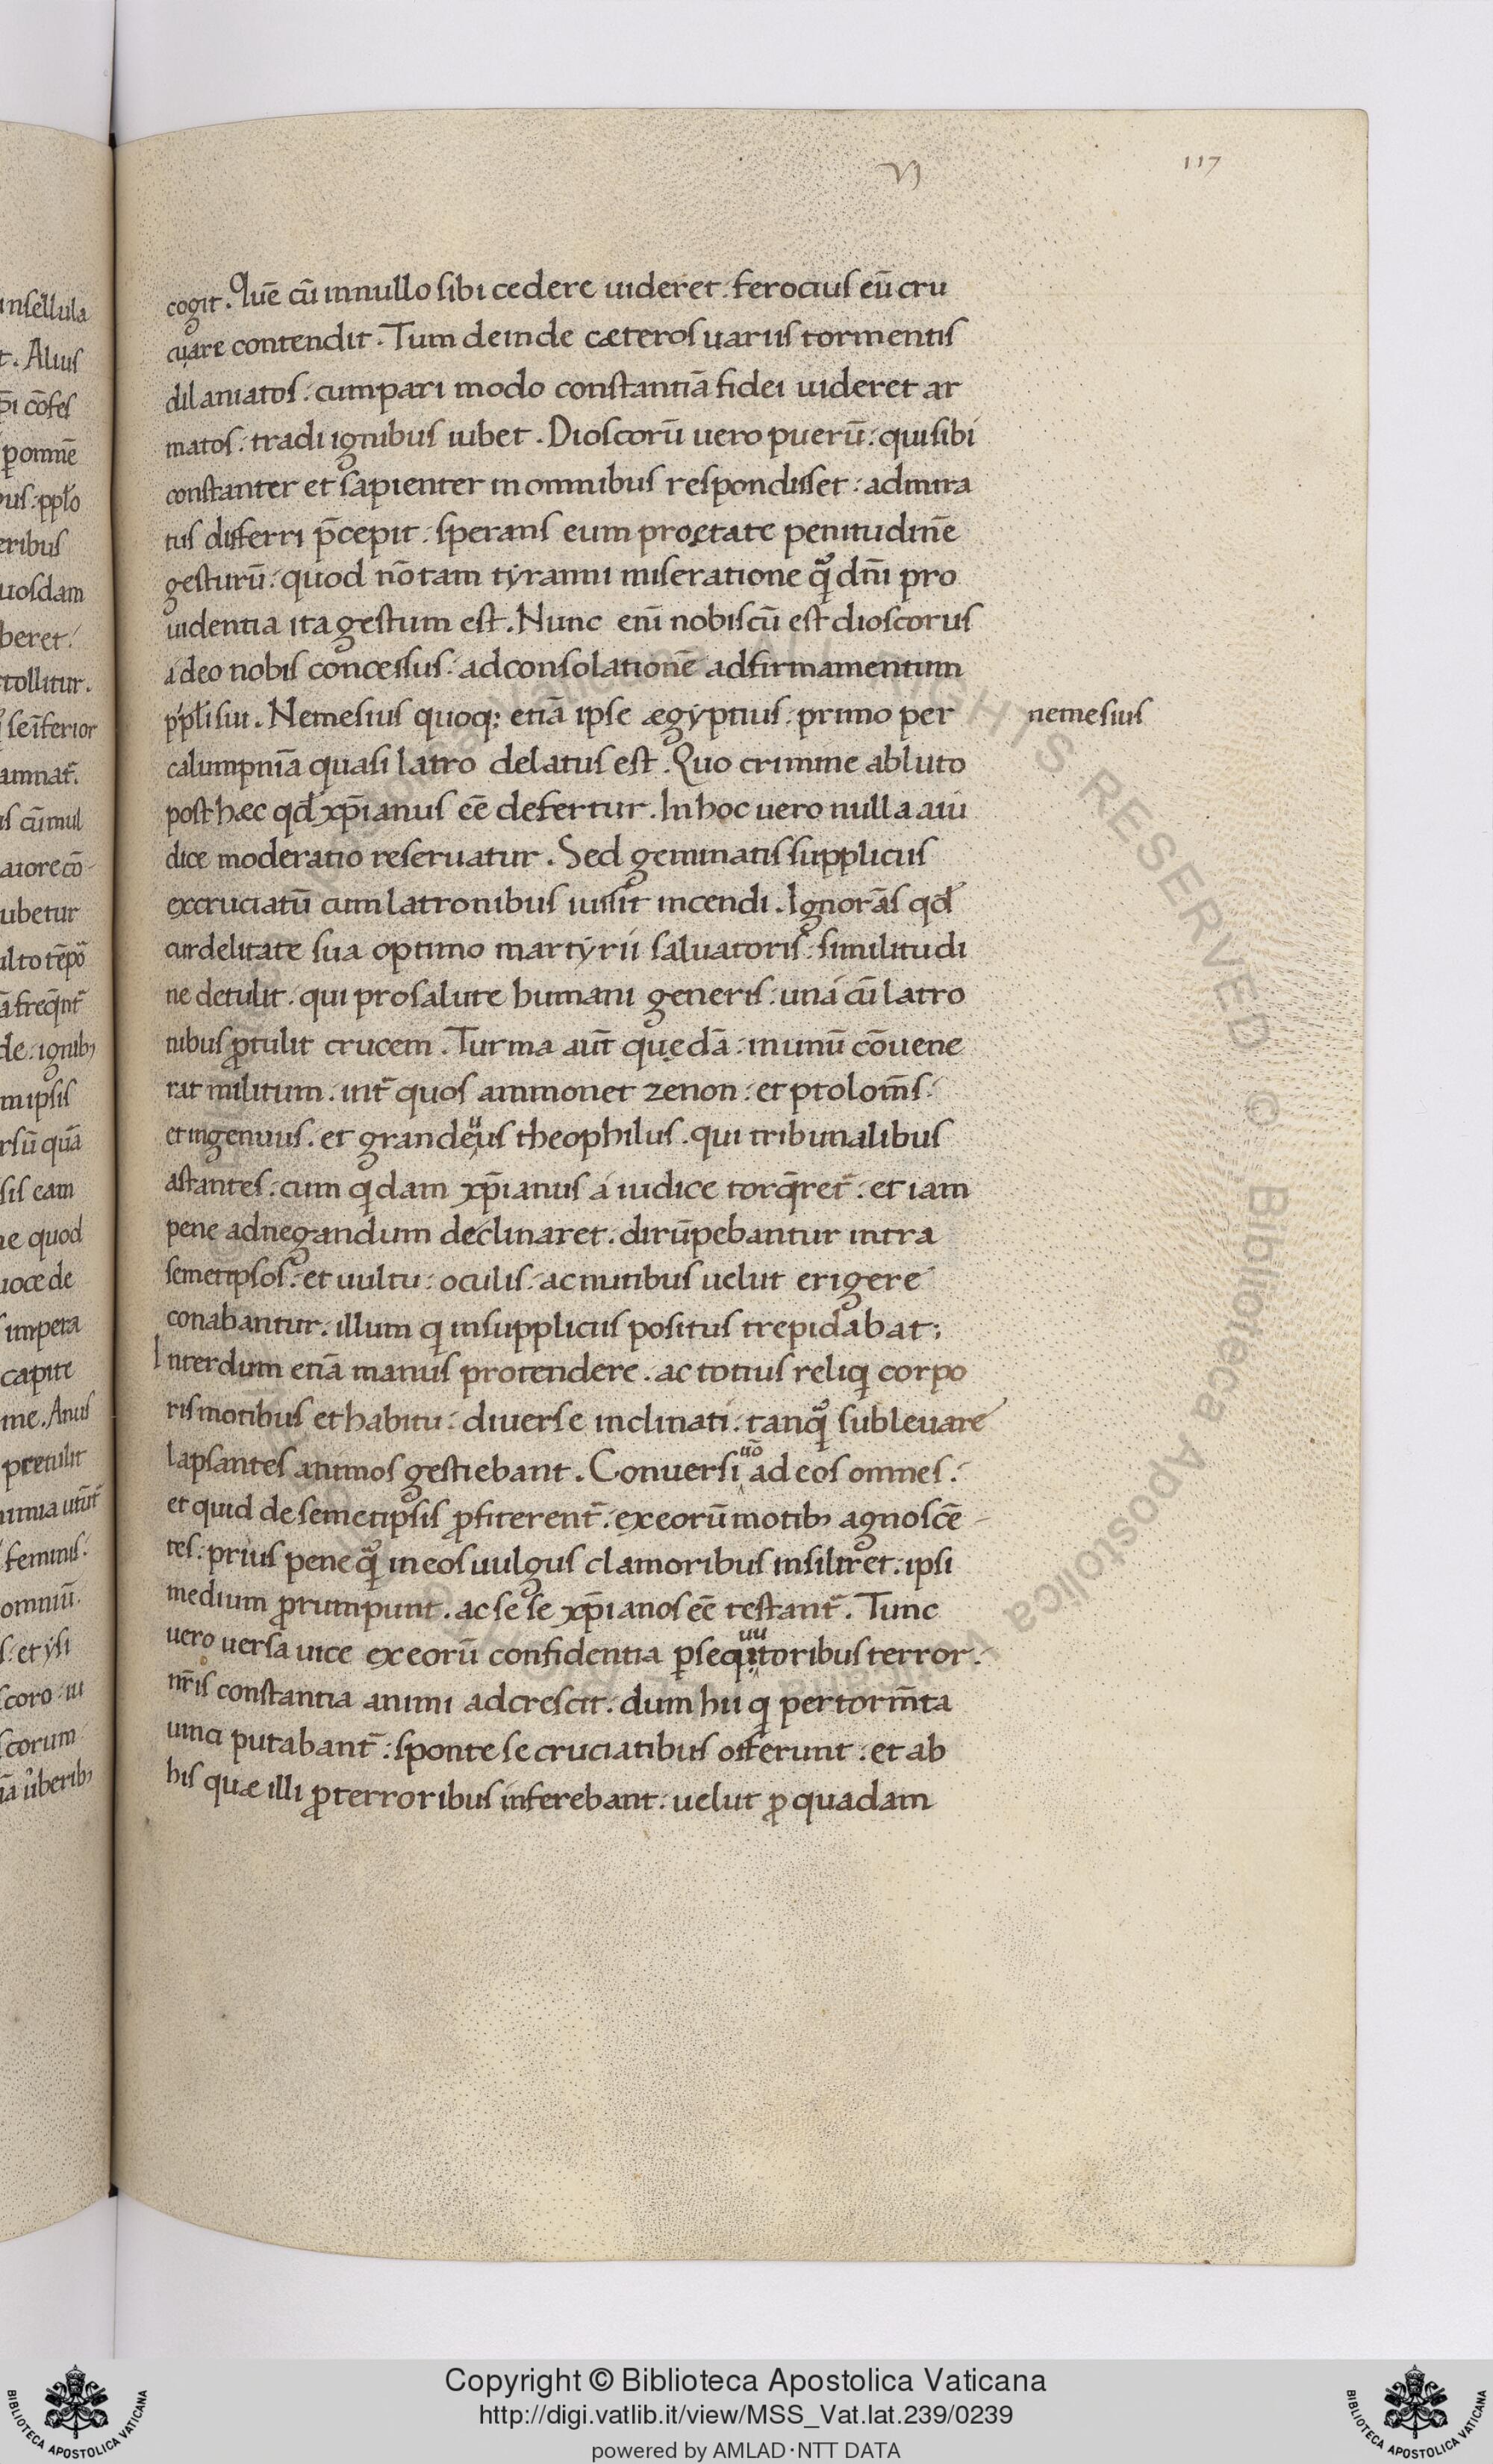 VI
117
cogit. Quē cū innullo sibi cedere uideret. ferocius eū cru
ciare contendit. Tum deinde cæteros uariis tormentis
dilaniatos. cumpari modo constantiā fidei uideret ar
matos. tradi ignibus iubet. Dioscorū uero puerū. quisibi
constanter et sapienter inomnibus respondisset. admira
tus differri p̄cepit. sperans eum proętate penitudinē
gesturū. quod nō tam tyranni miseratione qͣ̄ dn̄i pro
uidentia ita gestum est. Nunc enī nobiscū est dioscorus
adeo nobis concessus. adconsolationē adfirmamentum
pp̄li sui. Nemesius quoq; etiā ipse ægyptius. primo per
nemesius
calumpniā quasi latro delatus est. Quo crimine abluto
posthæc qđ xp̄ianus eē defertur. Inhoc uero nulla aiu
dice moderatio reseruatur. Sed geminatis suppliciis
excruciatū cumlatronibus iussit incendi. Ignorās qđ
curdelitate sua optimo martyrii saluatoris similitudi
ne detulit. qui prosalute humani generis. una cū latro
nibus ꝓtulit crucem. Turma aūt quędā. inunū cōuene
rat militum. int̄ quos ammonet zenon. et ptolom̄s.
et ingenuus. et grandeuus theophilus. qui tribunalibus
astantes. cum qidam xp̄ianus a iudice torq̄ret̄. et iam
pene adnegandum declinaret. dirūpebantur intra
semetipsos. et uultu. oculis. ac nutibus uelut erigere
conabantur. illum qi insuppliciis positus trepidabat;
Interdum etiā manus protendere. ac totius reliqi corpo
ris motibus et habitu. diuerse inclinati. tanqͣ̄ subleuare
lapsantes animos gestiebant. Conuersi uō ad eos omnes.
et quid de semetipsis ꝓfiterent̄. exeorū motib; agnoscē
tes. prius pene qͣ̄ ineos uulgus clamoribus insiliret. ipsi
medium ꝓrumpunt. ac se se xp̄ianos eē testant̄. Tunc
uero uersa uice exeorū confidentia ꝑsequutoribus terror.
nr̄is constantia animi adcrescit. dum hii qi per torm̄ta
uinci putabant̄. sponte se cruciatibus offerunt. et ab
his quæ illi ꝓterroribus inferebant. uelut ꝓ quadam
insellula
t. Alius
p̄i cōfes
ꝑomnē
eribus
uosdam
beret
tollitur.
amnat̄.
ubetur
mipsis
sis eam
quod
uoce de
impera
capite
me. Anus
feminis.
omniū.
scorum
Copyright © Biblioteca Apostolica Vaticana
http://digi.vatlib.it/view/MSS_Vat.lat.239/0239
powered by AMLAD·NTT DATA
BIBLIOTECA APOSTOLICA VATICANA
BIBLIOTECA APOSTOLICA VATICANA